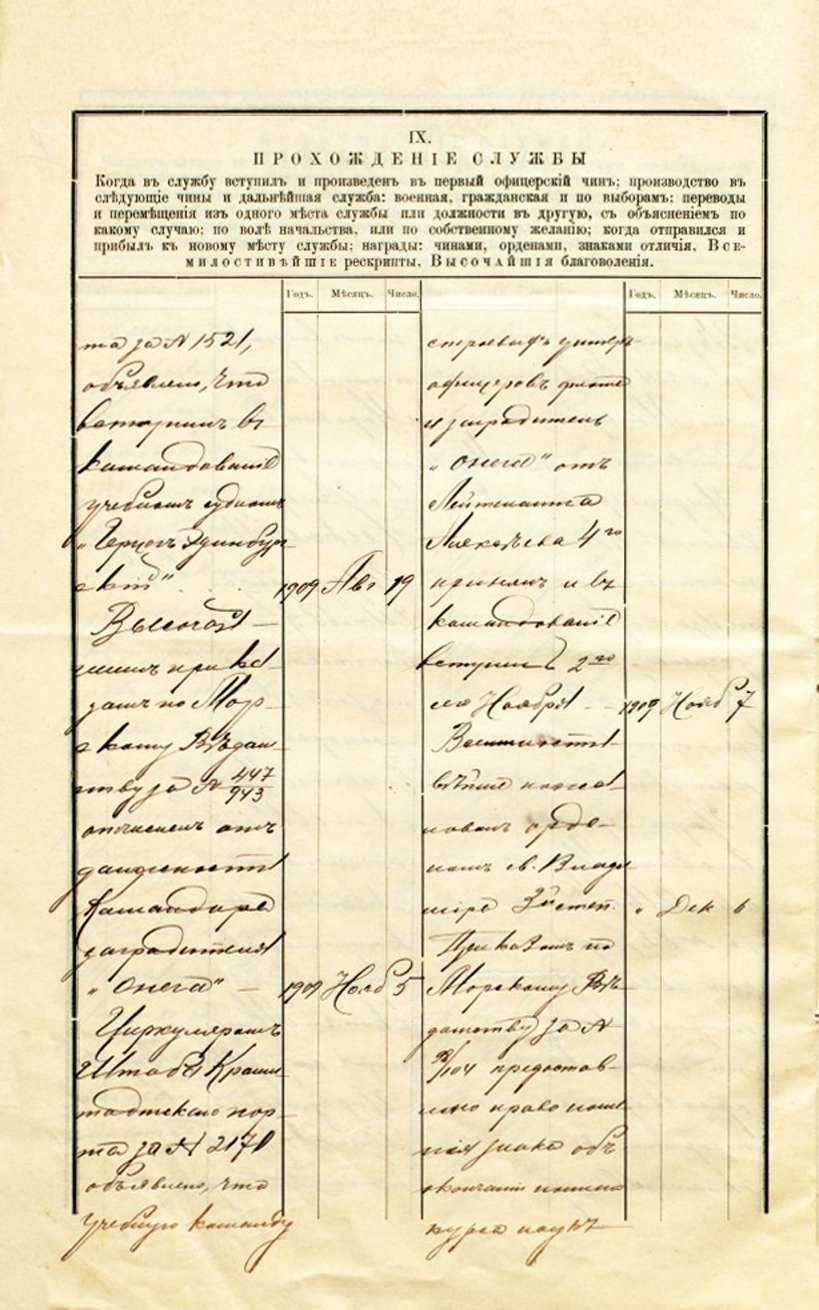 IX.
ПРОХОЖДЕНІЕ СЛУЖБЫ
Когда въ службу вступилъ и произведенъ въ первый офицерскій чинъ; производство въ
слѣдующіе чины и дальнѣйшая служба: военная, гражданская и по выборамъ; переводы
и перемѣщенія изъ одного мѣста службы или должности въ другую, съ объясненіемъ по
какому случаю; по волѣ начальства, или по собственному желанію; когда отправился и
прибылъ къ новому мѣсту службы; награды: чинами, орденами, знаками отличія, Все-
милостивѣйшіе рескрипты, Высочайшія благоволенія.
Годъ. Мѣсяцъ. Число.
та за № 1521,
объявлено, что
вступилъ въ
командованіе
учебнымъ судномъ
„Герцогъ Эдинбург
скій"
1909 Авг 19
Высочай-
шимъ прика-
зомъ по Мор-
скому Вѣдом-
ству за № 447/943
отчисленъ отъ
должности
Командира
заградителя
„Онега" —
1909 Нояб 5
Циркуляромъ
Штаба Крон-
тадтскаго пор-
та за № 2171
объявлено, что
учебную команду
Годъ. Мѣсяцъ. Число.
строевыхъ унтеръ-
офицеровъ флота
и заградитель
„Онега" отъ
Лейтенанта
4го
принялъ и въ
командованіе
вступилъ 2го
сего Ноября
1909 Нояб 7
Всемилости-
вѣйше пожа-
лованъ орде-
номъ св. Влади
міра 3й степ.
„ Дек 6
Приказомъ по
Морскому Вѣ-
домству за №
/104 предостав-
лено право ноше
нія знака объ
окончаніи полнаго
курса наукъ